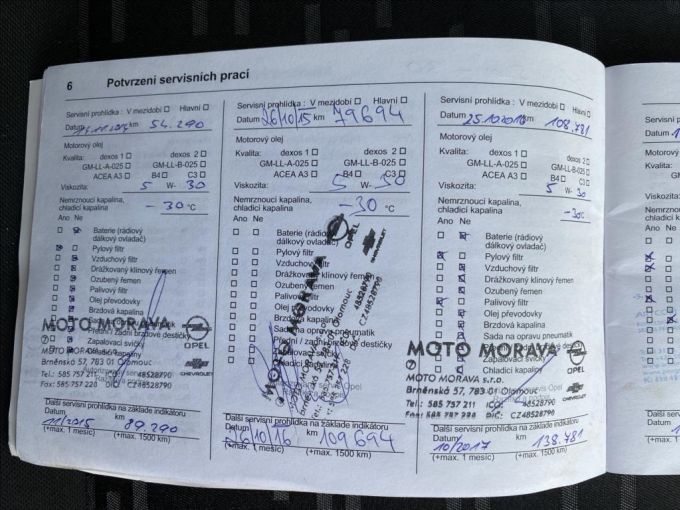 6 Potvrzení servisních prací
Servisní prohlídka : V mezidobí Hlavní
Datum km 54.290
Motorový olej
Kvalita: dexos 1 dexos 2
GM-LL-A-025 GM-LL-B-025
ACEA A3 B4 C3
Viskozita: 5 W- 30
Nemrznoucí kapalina,
chladicí kapalina -30 °C
Ano Ne
Baterie (rádiový
dálkový ovladač)
Pylový filtr
Vzduchový filtr
Drážkovaný klínový řemen
Ozubený řemen
Palivový filtr
Olej převodovky
Brzdová kapalina
MOTO MORAVA OPEL
Přední / zadní brzdové destičky
Chladicí kapaliny
Brněnská 57, 783 01 Olomouc
Tel.: 585 757 211 48528790
Fax: 585 757 228 DIČ: CZ48528790
CHEVROLET
Další servisní prohlídka na základe indikátoru
Datum 11/2015 km 89.290
(+max. 1 mesíc) (+max. 1500 km)
Servisní prohlídka : V mezidobí Hlavní
Datum 26/10/15 km 79694
Motorový olej
Kvalita: dexos 1 dexos 2
GM-LL-A-025 GM-LL-B-025
ACEA A3 B4 C3
Viskozita: 5 W- 30
Nemrznoucí kapalina,
chladicí kapalina -30 °C
Ano Ne
Baterie (rádiový
dálkový ovladač)
Pylový filtr
Vzduchový filtr
Drážkovaný klínový řemen
Ozubený řemen
Palivový filtr
Olej převodovky
Brzdová kapalina
Sada na opravu pneumatik
Přední / zadní brzdové destičky
Zapalovací svíčky
Chladicí kapaliny
MOTO MORAVA OPEL
CHEVROLET
Olomouc
48528790
CZ48528790
Další servisní prohlídka na základe indikátoru
Datum 26/10/16 km 109694
(+max. 1 mesíc) (+max. 1500 km)
Servisní prohlídka : V mezidobí Hlavní
Datum 25.10.2016 km 108.781
Motorový olej
Kvalita: dexos 1 dexos 2
GM-LL-A-025 GM-LL-B-025
ACEA A3 B4 C3
Viskozita: 5 W- 30
Nemrznoucí kapalina,
chladicí kapalina -30 °C
Ano Ne
Baterie (rádiový
dálkový ovladač)
Pylový filtr
Vzduchový filtr
Drážkovaný klínový řemen
Ozubený řemen
Palivový filtr
Olej převodovky
Brzdová kapalina
Sada na opravu pneumatik
Zapalovací svíčky
MOTO MORAVA OPEL
MOTO MORAVA s.r.o.
Brněnská 57, 783 01 Olomouc
Tel.: 585 757 211 48528790
Fax: 585 757 228 DIČ: CZ48528790
CHEVROLET
Další servisní prohlídka na základe indikátoru
Datum 10/2017 km 138.781
(+max. 1 mesíc) (+max. 1500 km)